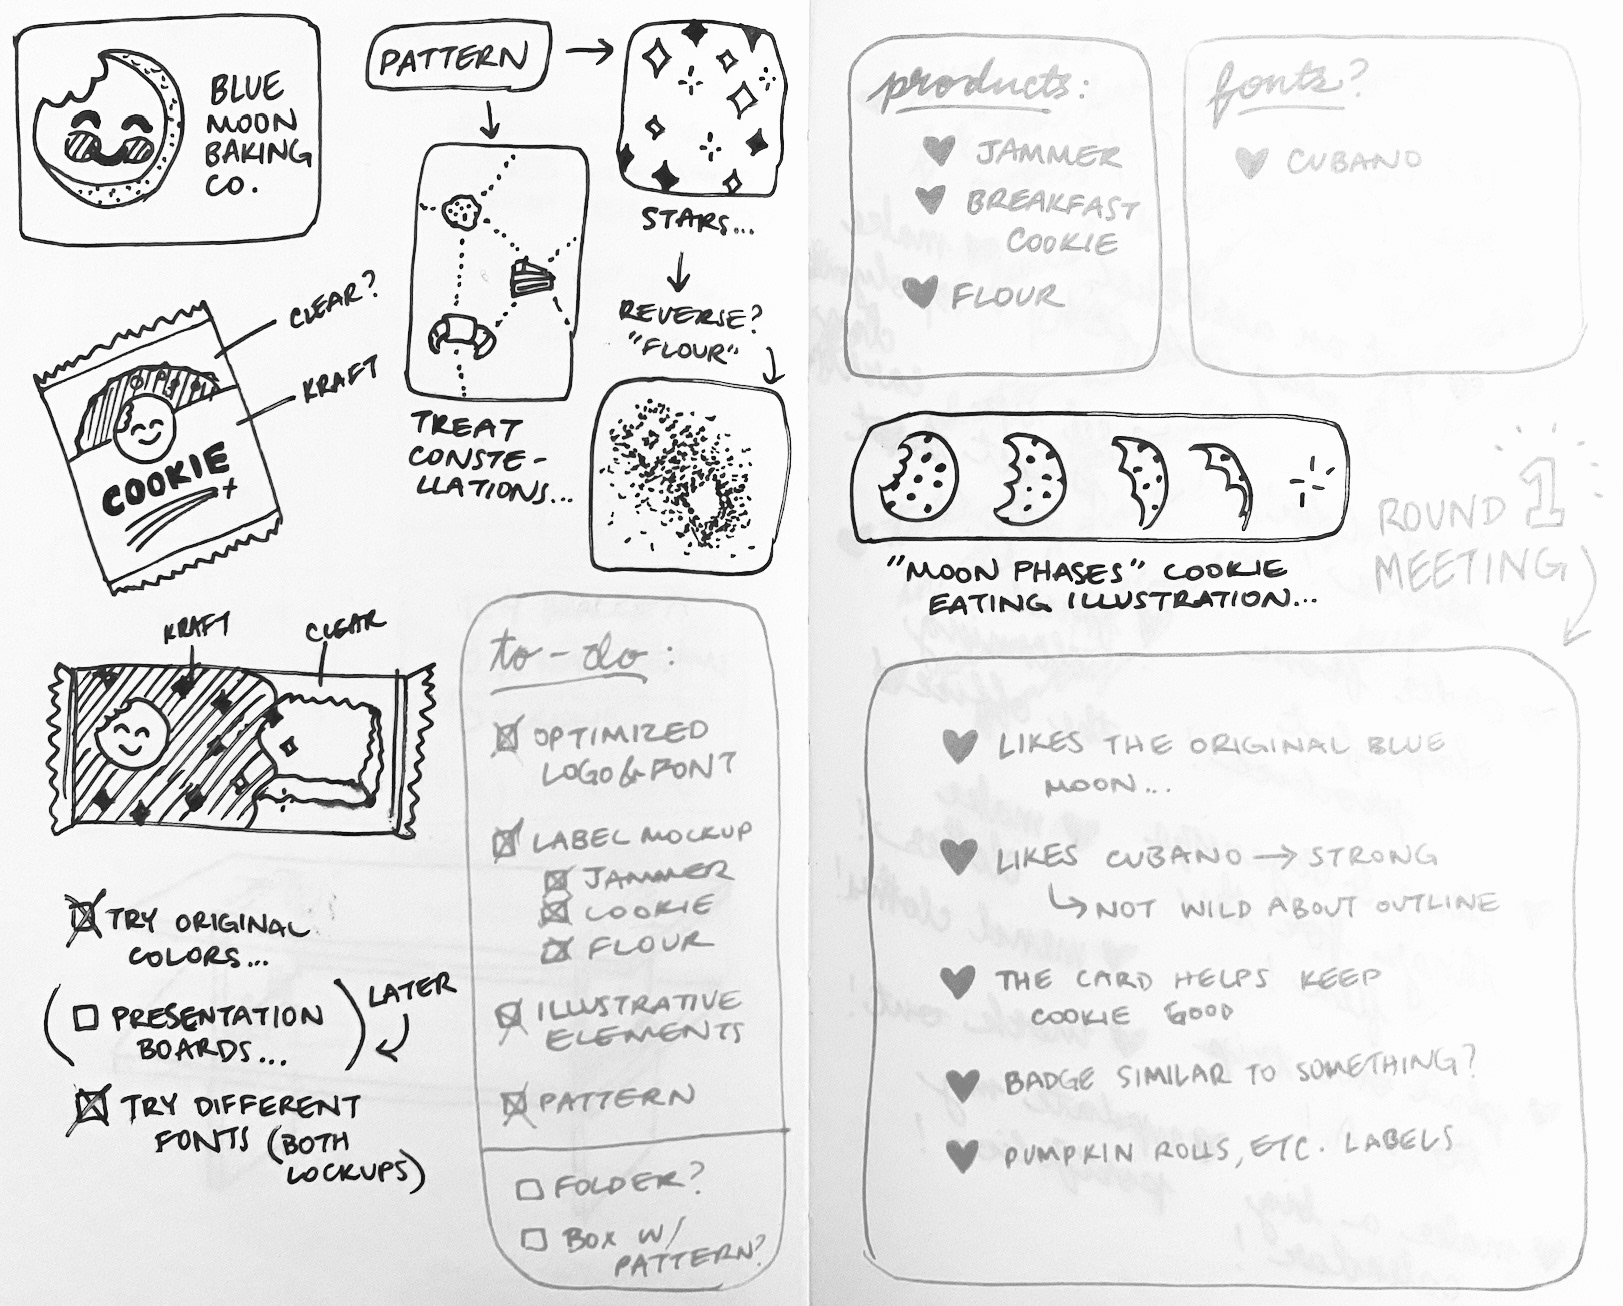 BLUE
MOON
BAKING
CO.
PATTERN
STARS...
REVERSE?
"FLOUR"
TREAT
CONSTE-
LLATIONS...
CLEAR?
KRAFT
COOKIE
KRAFT
CLEAR
TRY ORIGINAL
COLORS...
(PRESENTATION
BOARDS...)
LATER
TRY DIFFERENT
FONTS (BOTH
LOCKUPS)
to-do:
OPTIMIZED
LOGO & FONT
LABEL MOCKUP
JAMMER
COOKIE
FLOUR
ILLUSTRATIVE
ELEMENTS
PATTERN
FOLDER?
BOX W/
PATTERN?
products:
JAMMER
BREAKFAST
COOKIE
FLOUR
fonts?
CUBANO
"MOON PHASES" COOKIE
EATING ILLUSTRATION...
ROUND 1
MEETING
LIKES THE ORIGINAL BLUE
MOON...
LIKES CUBANO → STRONG
↳ NOT WILD ABOUT OUTLINE
THE CARD HELPS KEEP
COOKIE GOOD
BADGE SIMILAR TO SOMETHING?
PUMPKIN ROLLS, ETC. LABELS